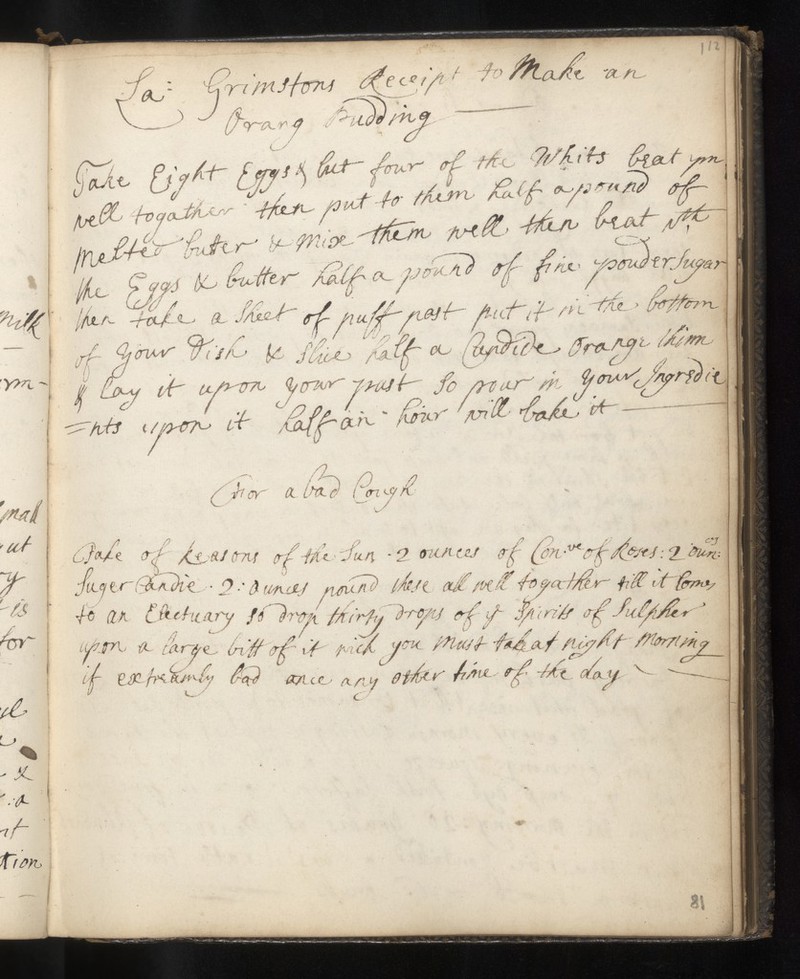 112
La: Grimstons Receipt to Make an
Orang Pudding
Take Eight Eggs & but four of the Whits beat ym
well togather then put to them half a pound of
Melted buter & Mix them well then beat wth
the Eggs & butter half a pound of fine pouder Sugar
then take a Sheet of puff past put it in the bottom
of your Dish & Slice half a Candide Orange thinn
& lay it upon your past So pour in your Ingredie
=nts upon it half an hour will bake it
For a bad Cough
Take of Reasons of the Sun . 2 ounces of Con:ve of Roses: 2 oun:ces
Suger Candie . 2: ounces pound these all well togather till it Comes
to an Electuary so drop thirty drops of ye Spirits of Sulpher
upon a large bitt of it wich you Must take at night Morning
if extreamly bad once any other time of the day
81
Milk
rm-
Small
ut
ry
is
for
&
:a
tion